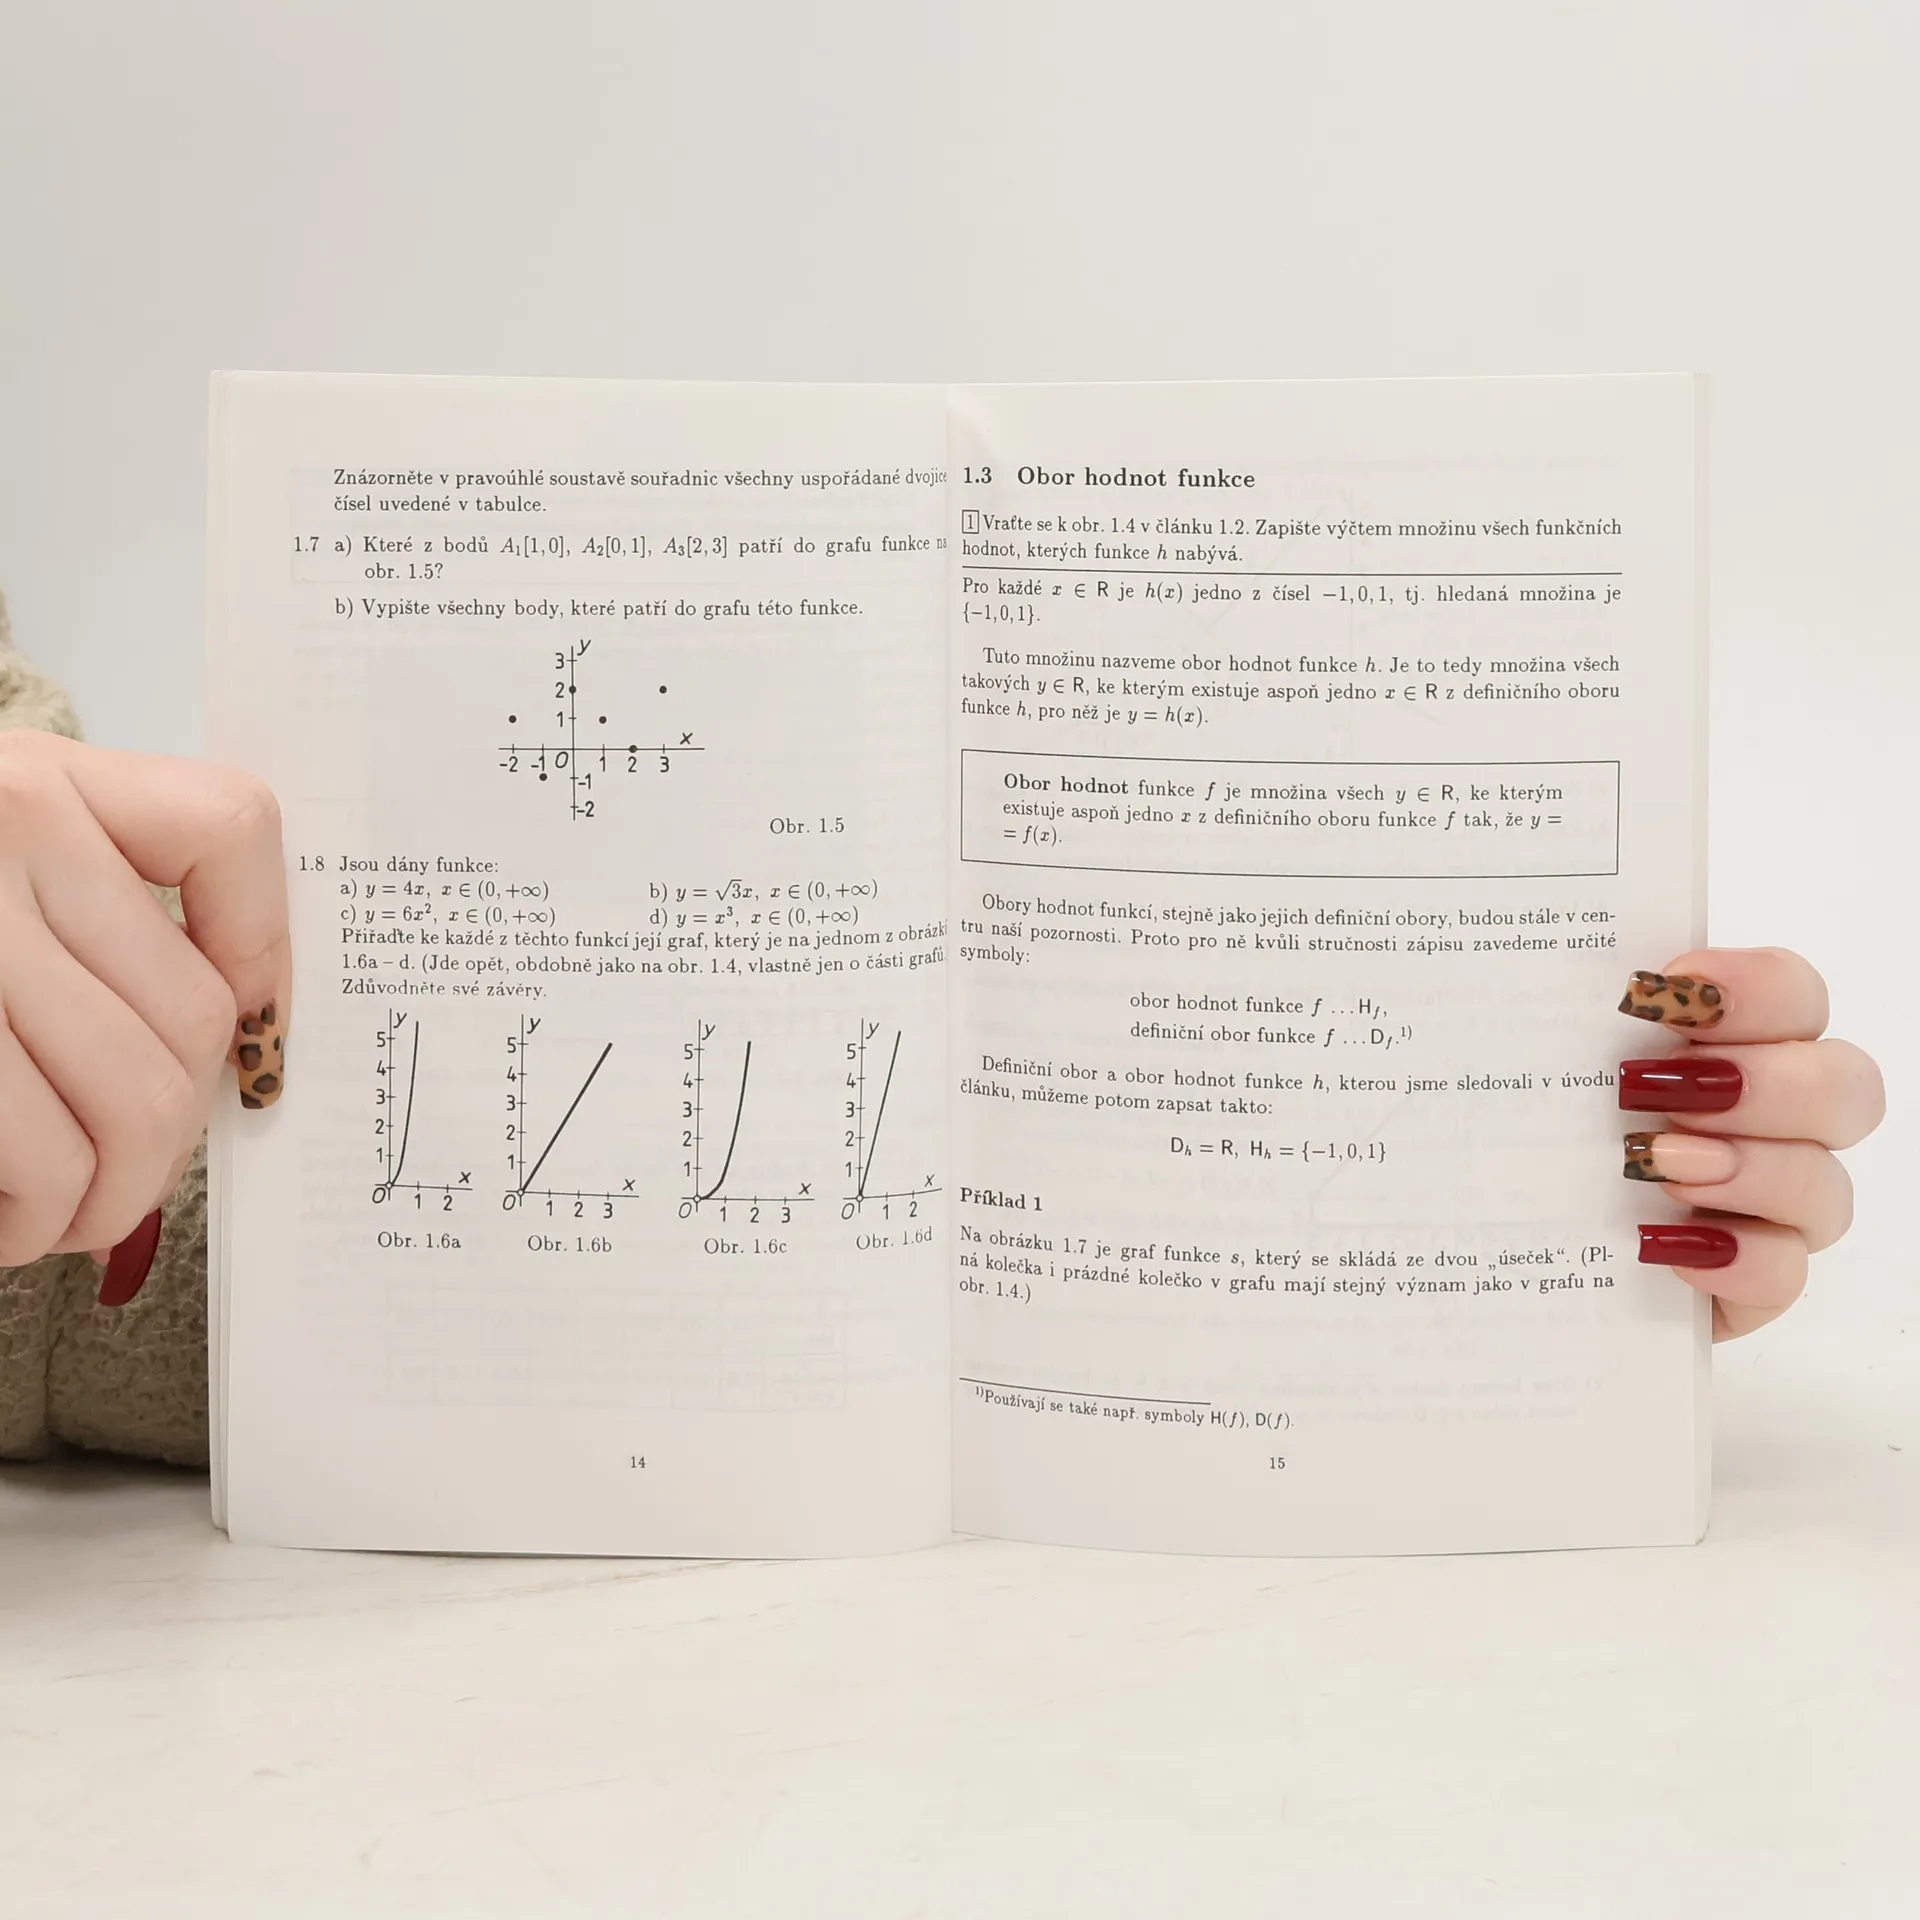 Znázorněte v pravoúhlé soustavě souřadnic všechny uspořádané dvojice
čísel uvedené v tabulce.
1.7 a) Které z bodů A₁[1,0], A₂[0,1], A₃[2,3] patří do grafu funkce na
obr. 1.5?
b) Vypište všechny body, které patří do grafu této funkce.
y
3
2
1
x
-2 -1 0 1 2 3
-1
-2
Obr. 1.5
1.8 Jsou dány funkce:
a) y = 4x, x ∈ (0, +∞) b) y = √3x, x ∈ (0, +∞)
c) y = 6x², x ∈ (0, +∞) d) y = x³, x ∈ (0, +∞)
Přiřaďte ke každé z těchto funkcí její graf, který je na jednom z obrázků
1.6a – d. (Jde opět, obdobně jako na obr. 1.4, vlastně jen o části grafů.
Zdůvodněte své závěry.
y
5
4
3
2
1
x
0 1 2
Obr. 1.6a
y
5
4
3
2
1
x
0 1 2 3
Obr. 1.6b
y
5
4
3
2
1
x
0 1 2 3
Obr. 1.6c
y
5
4
3
2
1
x
0 1 2
Obr. 1.6d
14
1.3 Obor hodnot funkce
1 Vraťte se k obr. 1.4 v článku 1.2. Zapište výčtem množinu všech funkčních
hodnot, kterých funkce h nabývá.
Pro každé x ∈ R je h(x) jedno z čísel −1, 0, 1, tj. hledaná množina je
{−1, 0, 1}.
Tuto množinu nazveme obor hodnot funkce h. Je to tedy množina všech
takových y ∈ R, ke kterým existuje aspoň jedno x ∈ R z definičního oboru
funkce h, pro něž je y = h(x).
Obor hodnot funkce f je množina všech y ∈ R, ke kterým
existuje aspoň jedno x z definičního oboru funkce f tak, že y =
= f(x).
Obory hodnot funkcí, stejně jako jejich definiční obory, budou stále v cen-
tru naší pozornosti. Proto pro ně kvůli stručnosti zápisu zavedeme určité
symboly:
obor hodnot funkce f ... H_f,
definiční obor funkce f ... D_f.¹⁾
Definiční obor a obor hodnot funkce h, kterou jsme sledovali v úvodu
článku, můžeme potom zapsat takto:
D_h = R, H_h = {−1, 0, 1}
Příklad 1
Na obrázku 1.7 je graf funkce s, který se skládá ze dvou „úseček“. (Pl-
ná kolečka i prázdné kolečko v grafu mají stejný význam jako v grafu na
obr. 1.4.)
¹⁾Používají se také např. symboly H(f), D(f).
15